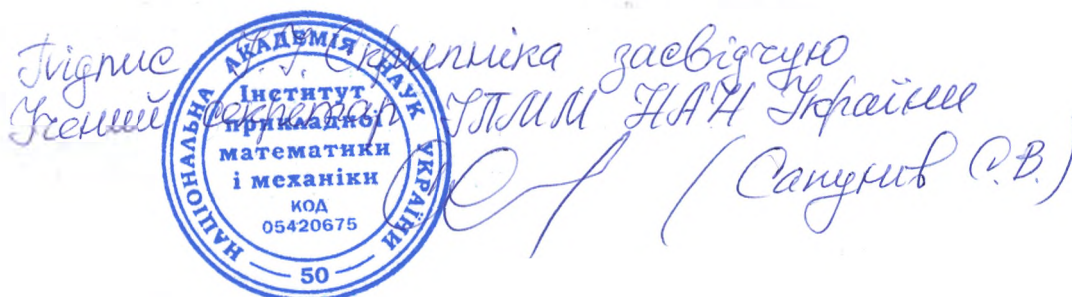 Підпис І.І. Скрипніка засвідчую
Учений секретар ІПММ НАН України
(Сапунов С.В.)
НАЦІОНАЛЬНА АКАДЕМІЯ НАУК УКРАЇНИ
Інститут
прикладної
математики
і механіки
КОД
05420675
50